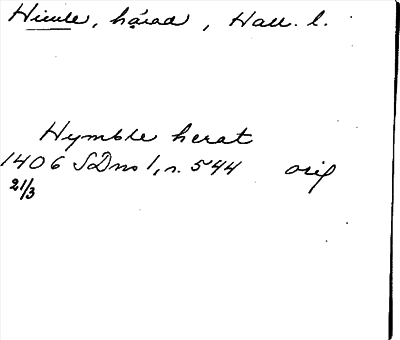 Himle, härad, Hall. l.
Hymble herat
1406 SDns 1, n. 544 orig
21/3